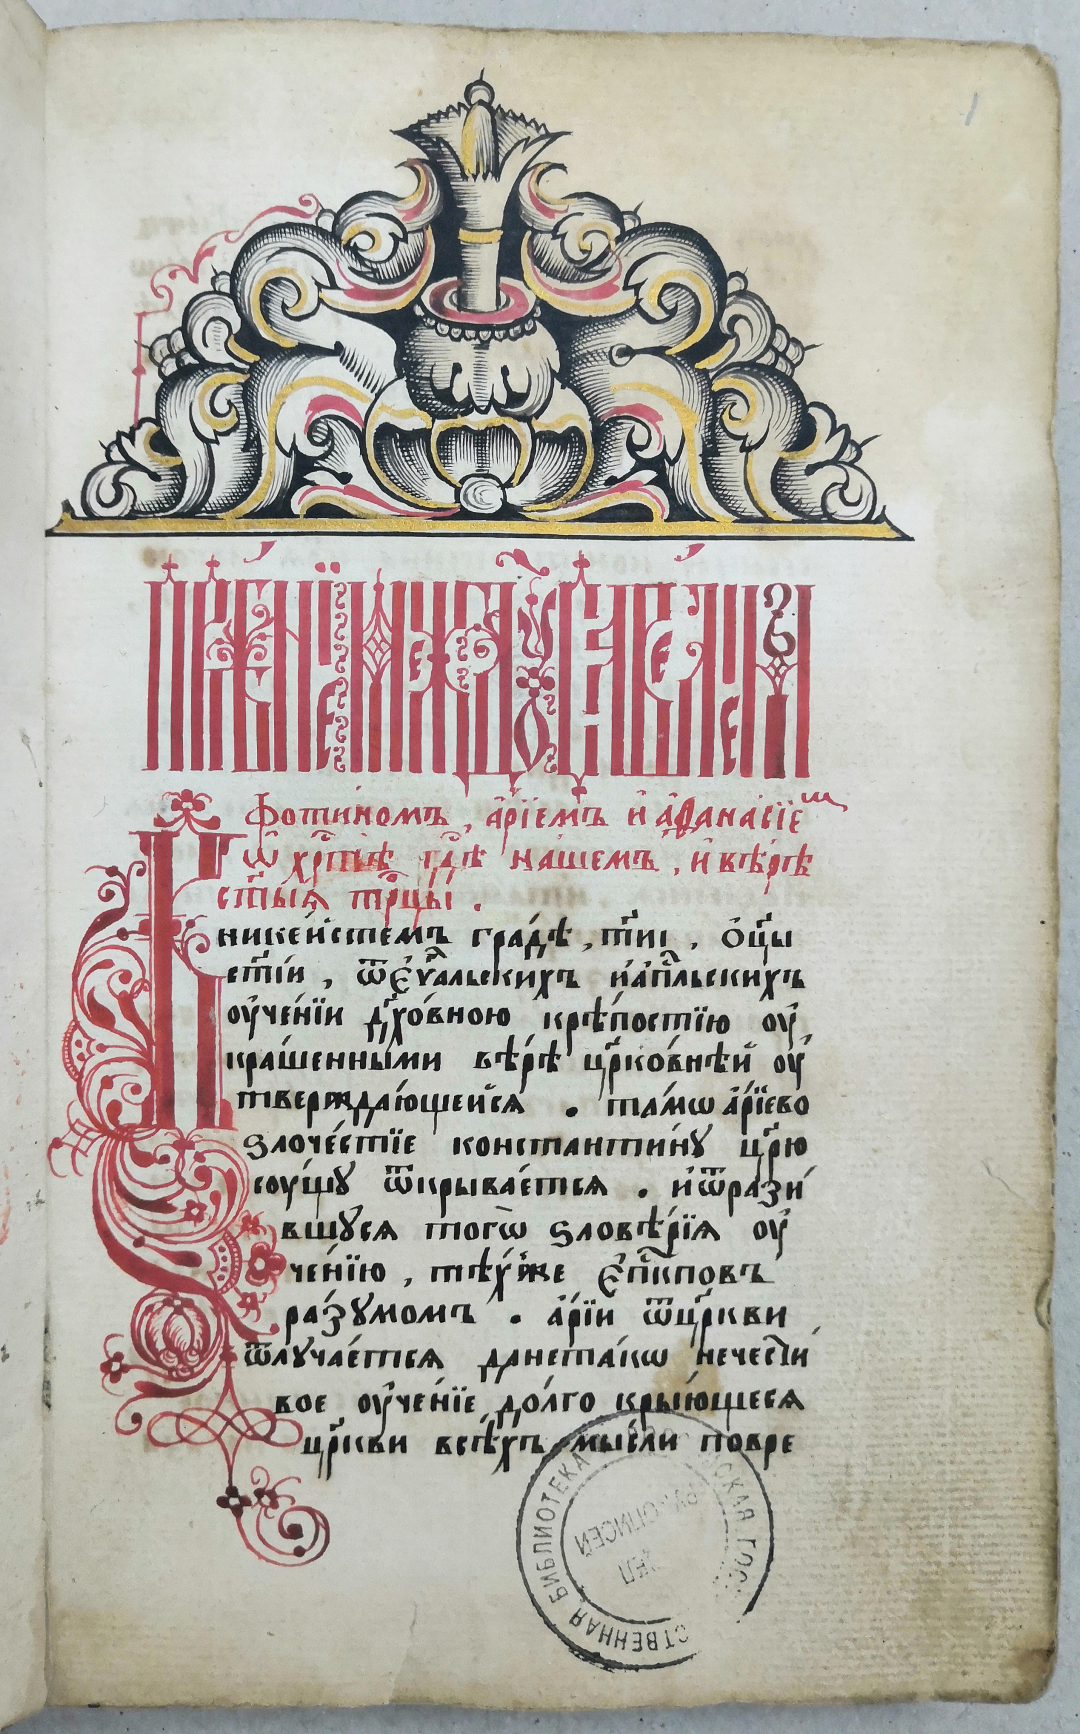 Фотиномъ, а҆рі́емъ и҆ а҆ѳанасїе
ѡ҆ хрⷭ҇тѣ́ гдⷭ҇ѣ нашемъ, и҆ вѣ́рѣ
ст҃ы́ѧ трⷪ҇цы.
В
никейстемъ гра́дѣ, тїиⷩ, ѻ҆ц҃ы
ст҃і́и, ѿ є҆ѵⷢ҇льскихъ и҆ а҆пⷭ҇льскихъ
оу҆че́нїи дꙋхо́вною крѣ́постїю оу҆
кра́шенными вѣ́рѣ црⷪ҇ко́внѣй оу҆
твержда́ющейсѧ. та́мѡ а҆рі́ево
ѕлоче́стїе константи́нꙋ цр҃ю
сꙋ́щꙋ ѿкрыва́етсѧ. и҆ ѿрази́
вшꙋсѧ тогѡ̀ ѕловѣ́рїѧ оу҆
че́нїю, тѣ́хже є҆пⷭ҇кповъ
ра́зꙋмомъ. а҆рі́и ѿ цр҃кви
ѿлꙋча́етсѧ да нетакѡ нечести́
вое оу҆че́нїе до́лго кры́ющесѧ
цр҃кви всѣ́хъ мы́сли повре
БИБЛИОТЕКА